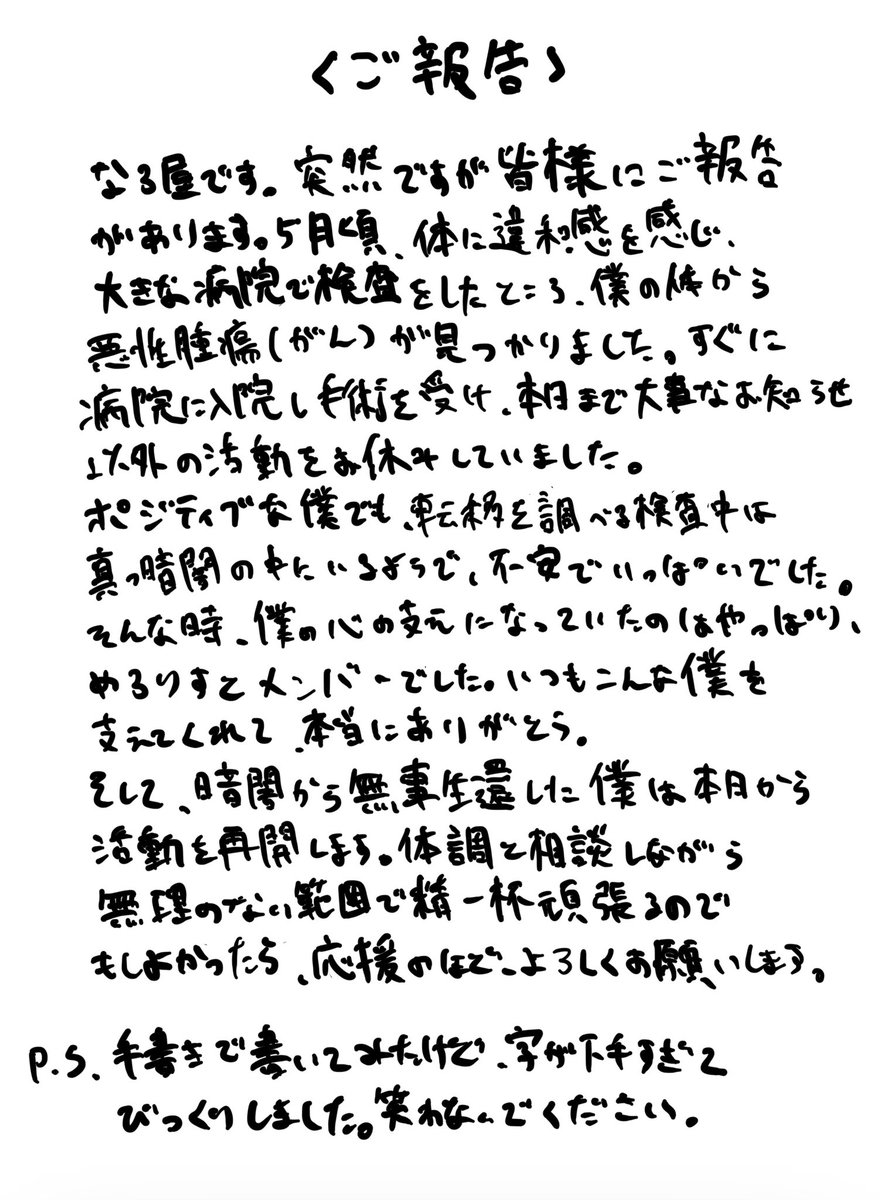 〈ご報告〉
なる屋です。突然ですが皆様にご報告
があります。5月頃、体に違和感を感じ、
大きな病院で検査をしたところ、僕の体から
悪性腫瘍(がん)が見つかりました。すぐに
病院に入院し手術を受け、本日まで大事なお知らせ
以外の活動をお休みしていました。
ポジティブな僕でも、転移を調べる検査中は
真っ暗闇の中にいるようで、不安でいっぱいでした。
そんな時、僕の心の支えになっていたのはやっぱり、
めろりすとメンバーでした。いつもこんな僕を
支えてくれて、本当にありがとう。
そして、暗闇から無事生還した僕は本日から
活動を再開します。体調と相談しながら
無理のない範囲で精一杯頑張るので
もしよかったら、応援のほど、よろしくお願いします。
P.S. 手書きで書いてみたけど、字が下手すぎて
びっくりしました。笑わないでください。